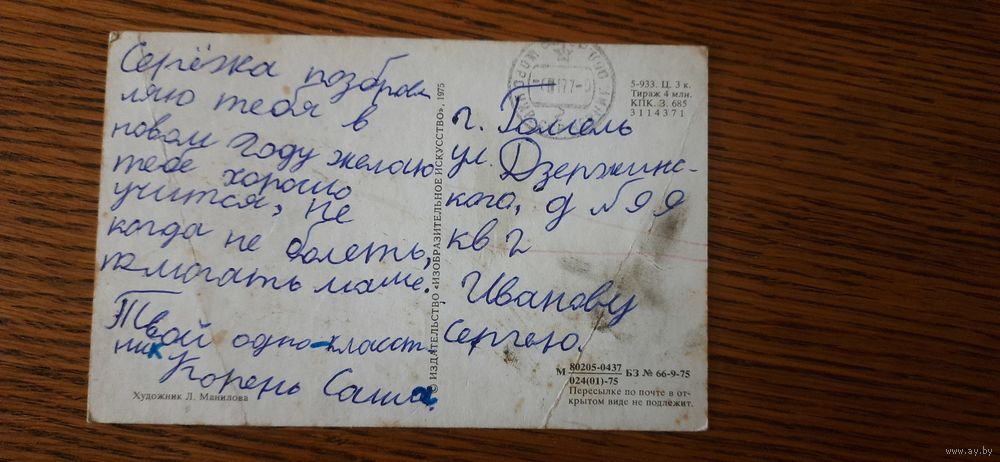 Сергёжка поздров
ляю тебя в
новом году желаю
тебе хорошо
учится, не
когда не болеть,
памогать маме.
Твой одно-класст
ник
Корень Саша
Художник Л. Манилова
© ИЗДАТЕЛЬСТВО «ИЗОБРАЗИТЕЛЬНОЕ ИСКУССТВО», 1975
5-933. Ц. 3 к.
Тираж 4 млн.
КПК. З. 685
3114371
г. Гомель
ул. Дзержинс-
кого, д №99
кв 2
Иванову
Сергею.
М 80205-0437 БЗ № 66-9-75
024(01)-75
Пересылке по почте в от-
крытом виде не подлежит.
www.ay.by